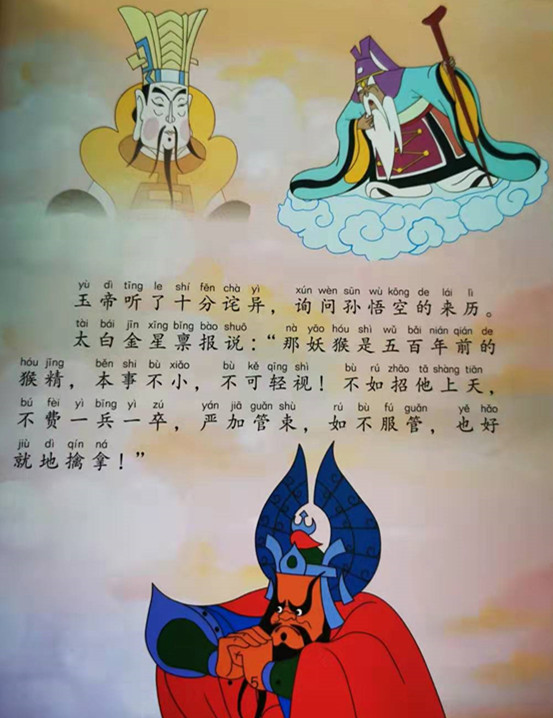 yù dì tīng le shí fēn chà yì xún wèn sūn wù kōng de lái lì
玉帝听了十分诧异，询问孙悟空的来历。
tài bái jīn xīng bǐng bào shuō nà yāo hóu shì wǔ bǎi nián qián de
太白金星禀报说：“那妖猴是五百年前的
hóu jīng běn shi bù xiǎo bù kě qīng shì bù rú zhāo tā shàng tiān
猴精，本事不小，不可轻视！不如招他上天，
bú fèi yì bīng yì zú yán jiā guǎn shù rú bù fú guǎn yě hǎo
不费一兵一卒，严加管束，如不服管，也好
jiù dì qín ná
就地擒拿！”
5